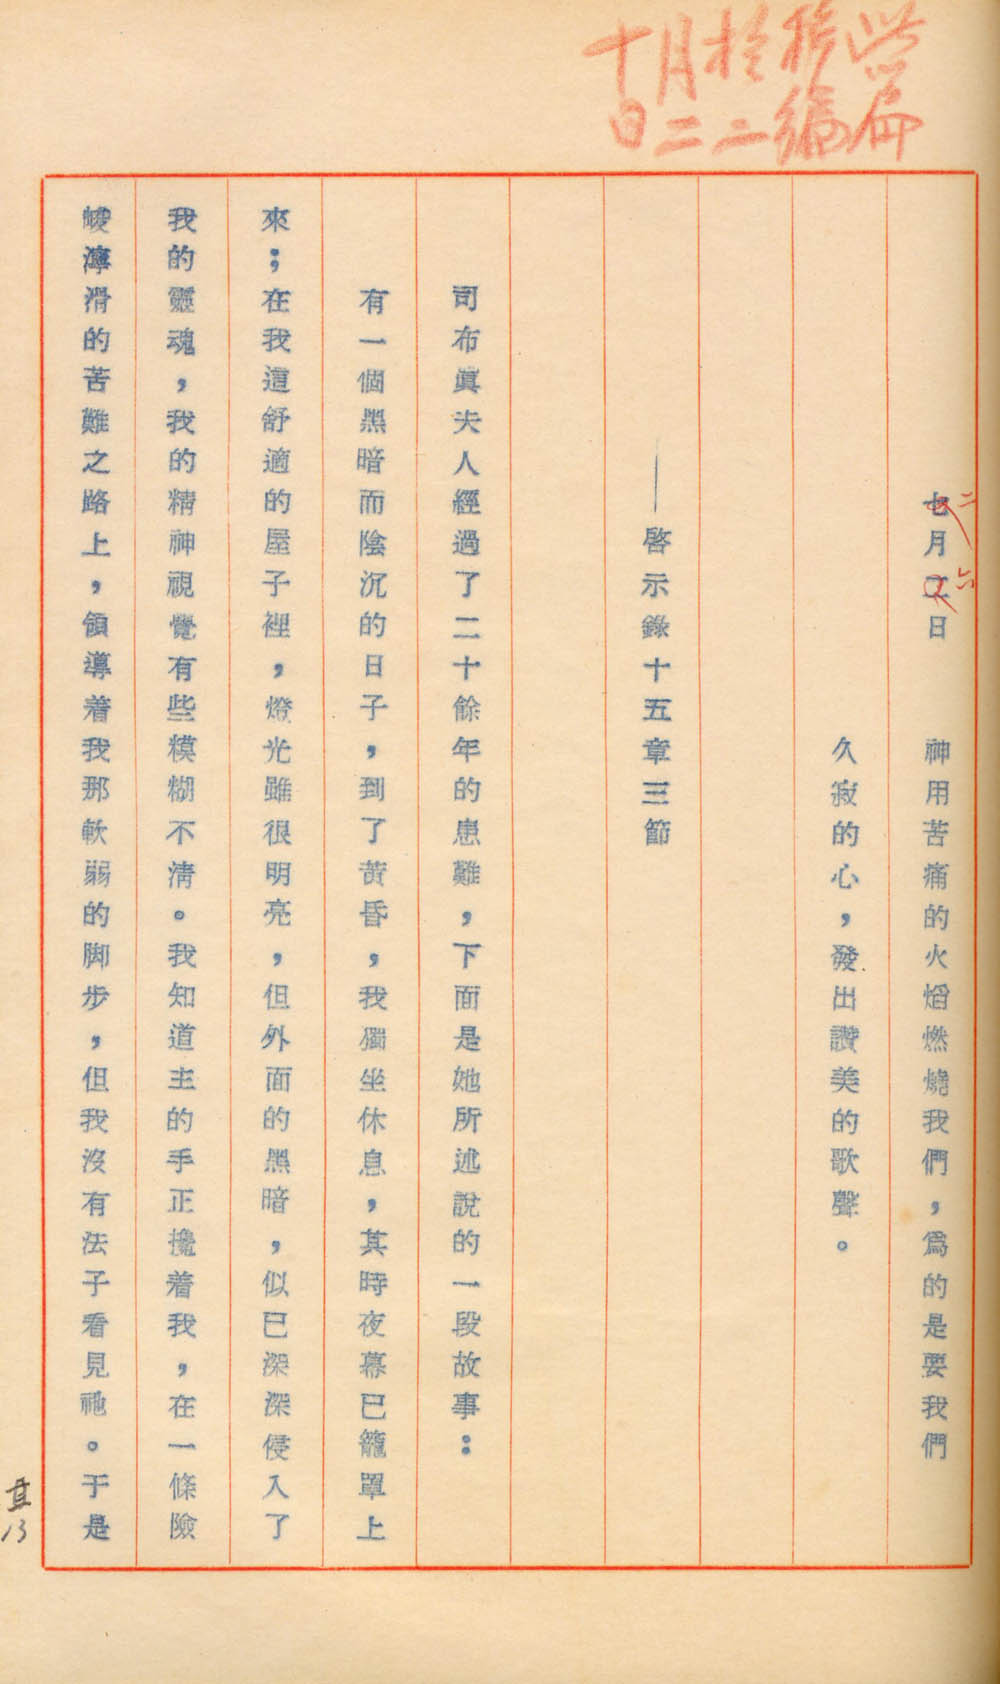 此篇
移編
於二
月二
十日
七月二日　神用苦痛的火熖燃燒我們，爲的是要我們
二 六
久寂的心，發出讚美的歌聲。
——啓示錄十五章三節
司布眞夫人經過了二十餘年的患難，下面是她所述說的一段故事：
有一個黑暗而陰沉的日子，到了黃昏，我獨坐休息，其時夜幕已籠罩上
來；在我這舒適的屋子裡，燈光雖很明亮，但外面的黑暗，似已深深侵入了
我的靈魂，我的精神視覺有些糢糊不清。我知道主的手正攙着我，在一條險
峻濘滑的苦難之路上，領導着我那軟弱的脚步，但我沒有法子看見祂。于是
13